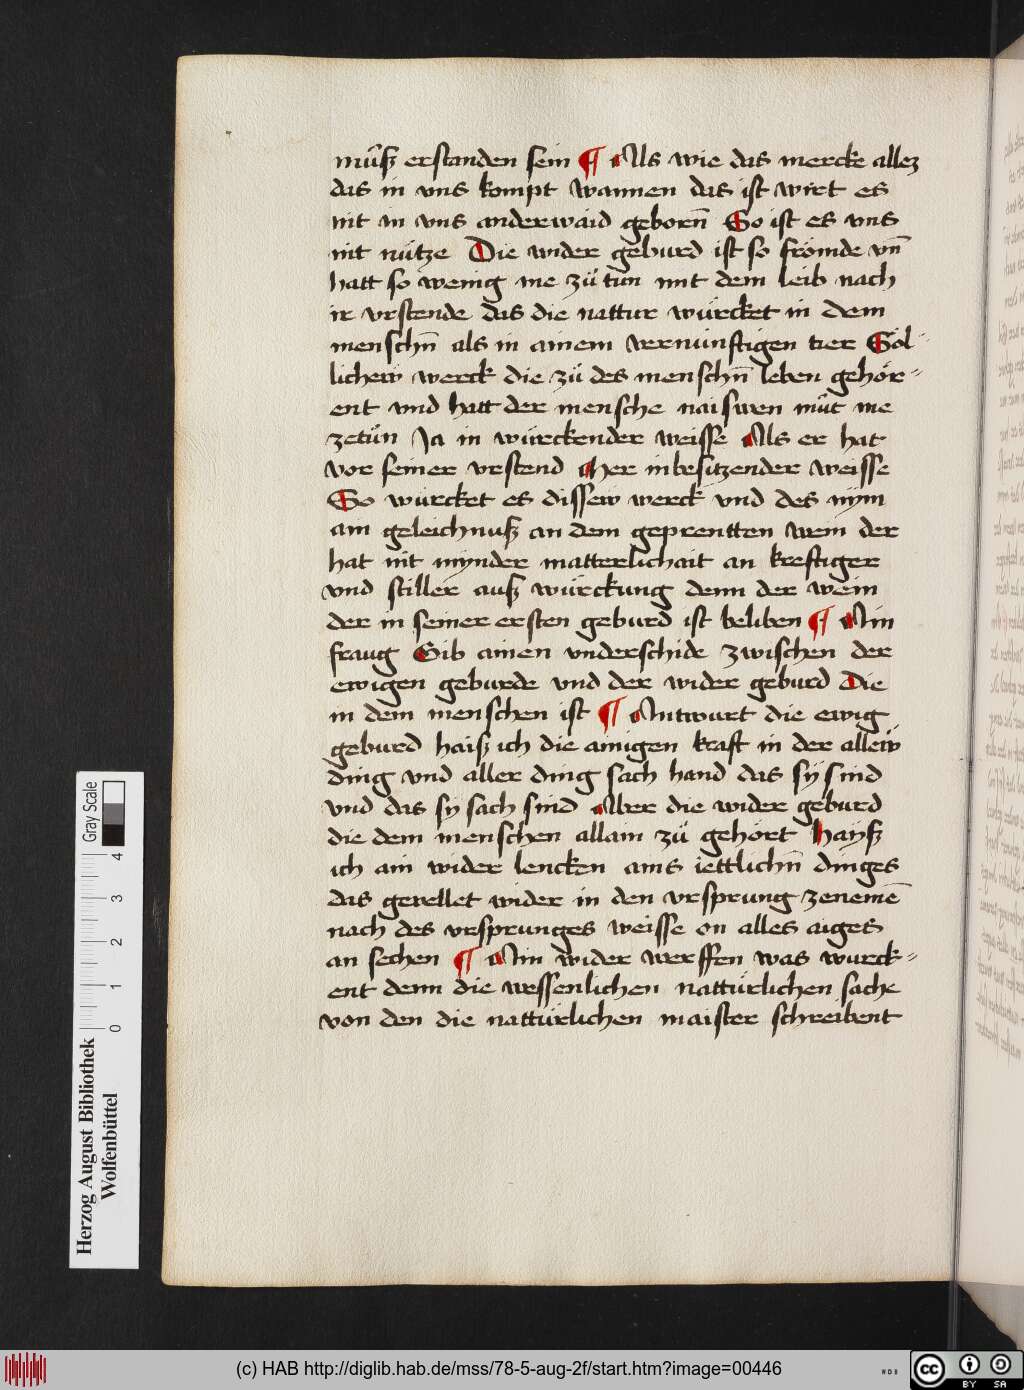 můsz erstanden sein ¶ Als wie das mercke allez
das in vns kompt wannen das ist wirt es
nit in vns anderwaid geborn̄ So ist es vns
nit nütze Die wider geburd ist so frömde vn̄
hatt so wenig me zů tun mit dem leib nach
ir vrstende das die nattur würcket in dem
menschn̄ als in ainem vernünftigen tier Söl-
licherv werck die zů des menschn̄ leben gehör-
ent vnd hatt der mensche naiswen můt me
zetůn Ja in würckender weisse Als er hat
vor seiner vrstend her inbesitzender weisse
So würcket es dissew werck vnd des nym
am geleichnusz an dem geprentten wein der
hat nit mynder matterlichait an kreftiger
vnd stiller ausz würckung denn der wein
der in seiner ersten geburd ist beliben ¶ Ain
fraug Gib ainen vnderschide zwischen der
ewigen geburde vnd der wider geburd Die
in dem menschen ist ¶ Antwurt die ewig
geburd haisz ich die ainigen kraft in der allew
ding vnd aller ding sach hand das sÿ sind
vnd das sÿ sach sind Aber die wider geburd
die dem menschen allain zů gehört haysz
ich ain wider lencken ains iettlichn̄ dinges
das gevellet wider in den vrsprung zenemē
nach des vrsprunges weisse on alles aiges
an sechen ¶ Ain wider werffen was wurck-
ent denn die wessenlichen nattürlichen sache
von den die nattürlichen maister schreibent
Herzog August Bibliothek
Wolfenbüttel
Gray Scale
0 1 2 3 4
(c) HAB http://diglib.hab.de/mss/78-5-aug-2f/start.htm?image=00446
WDB
cc BY SA